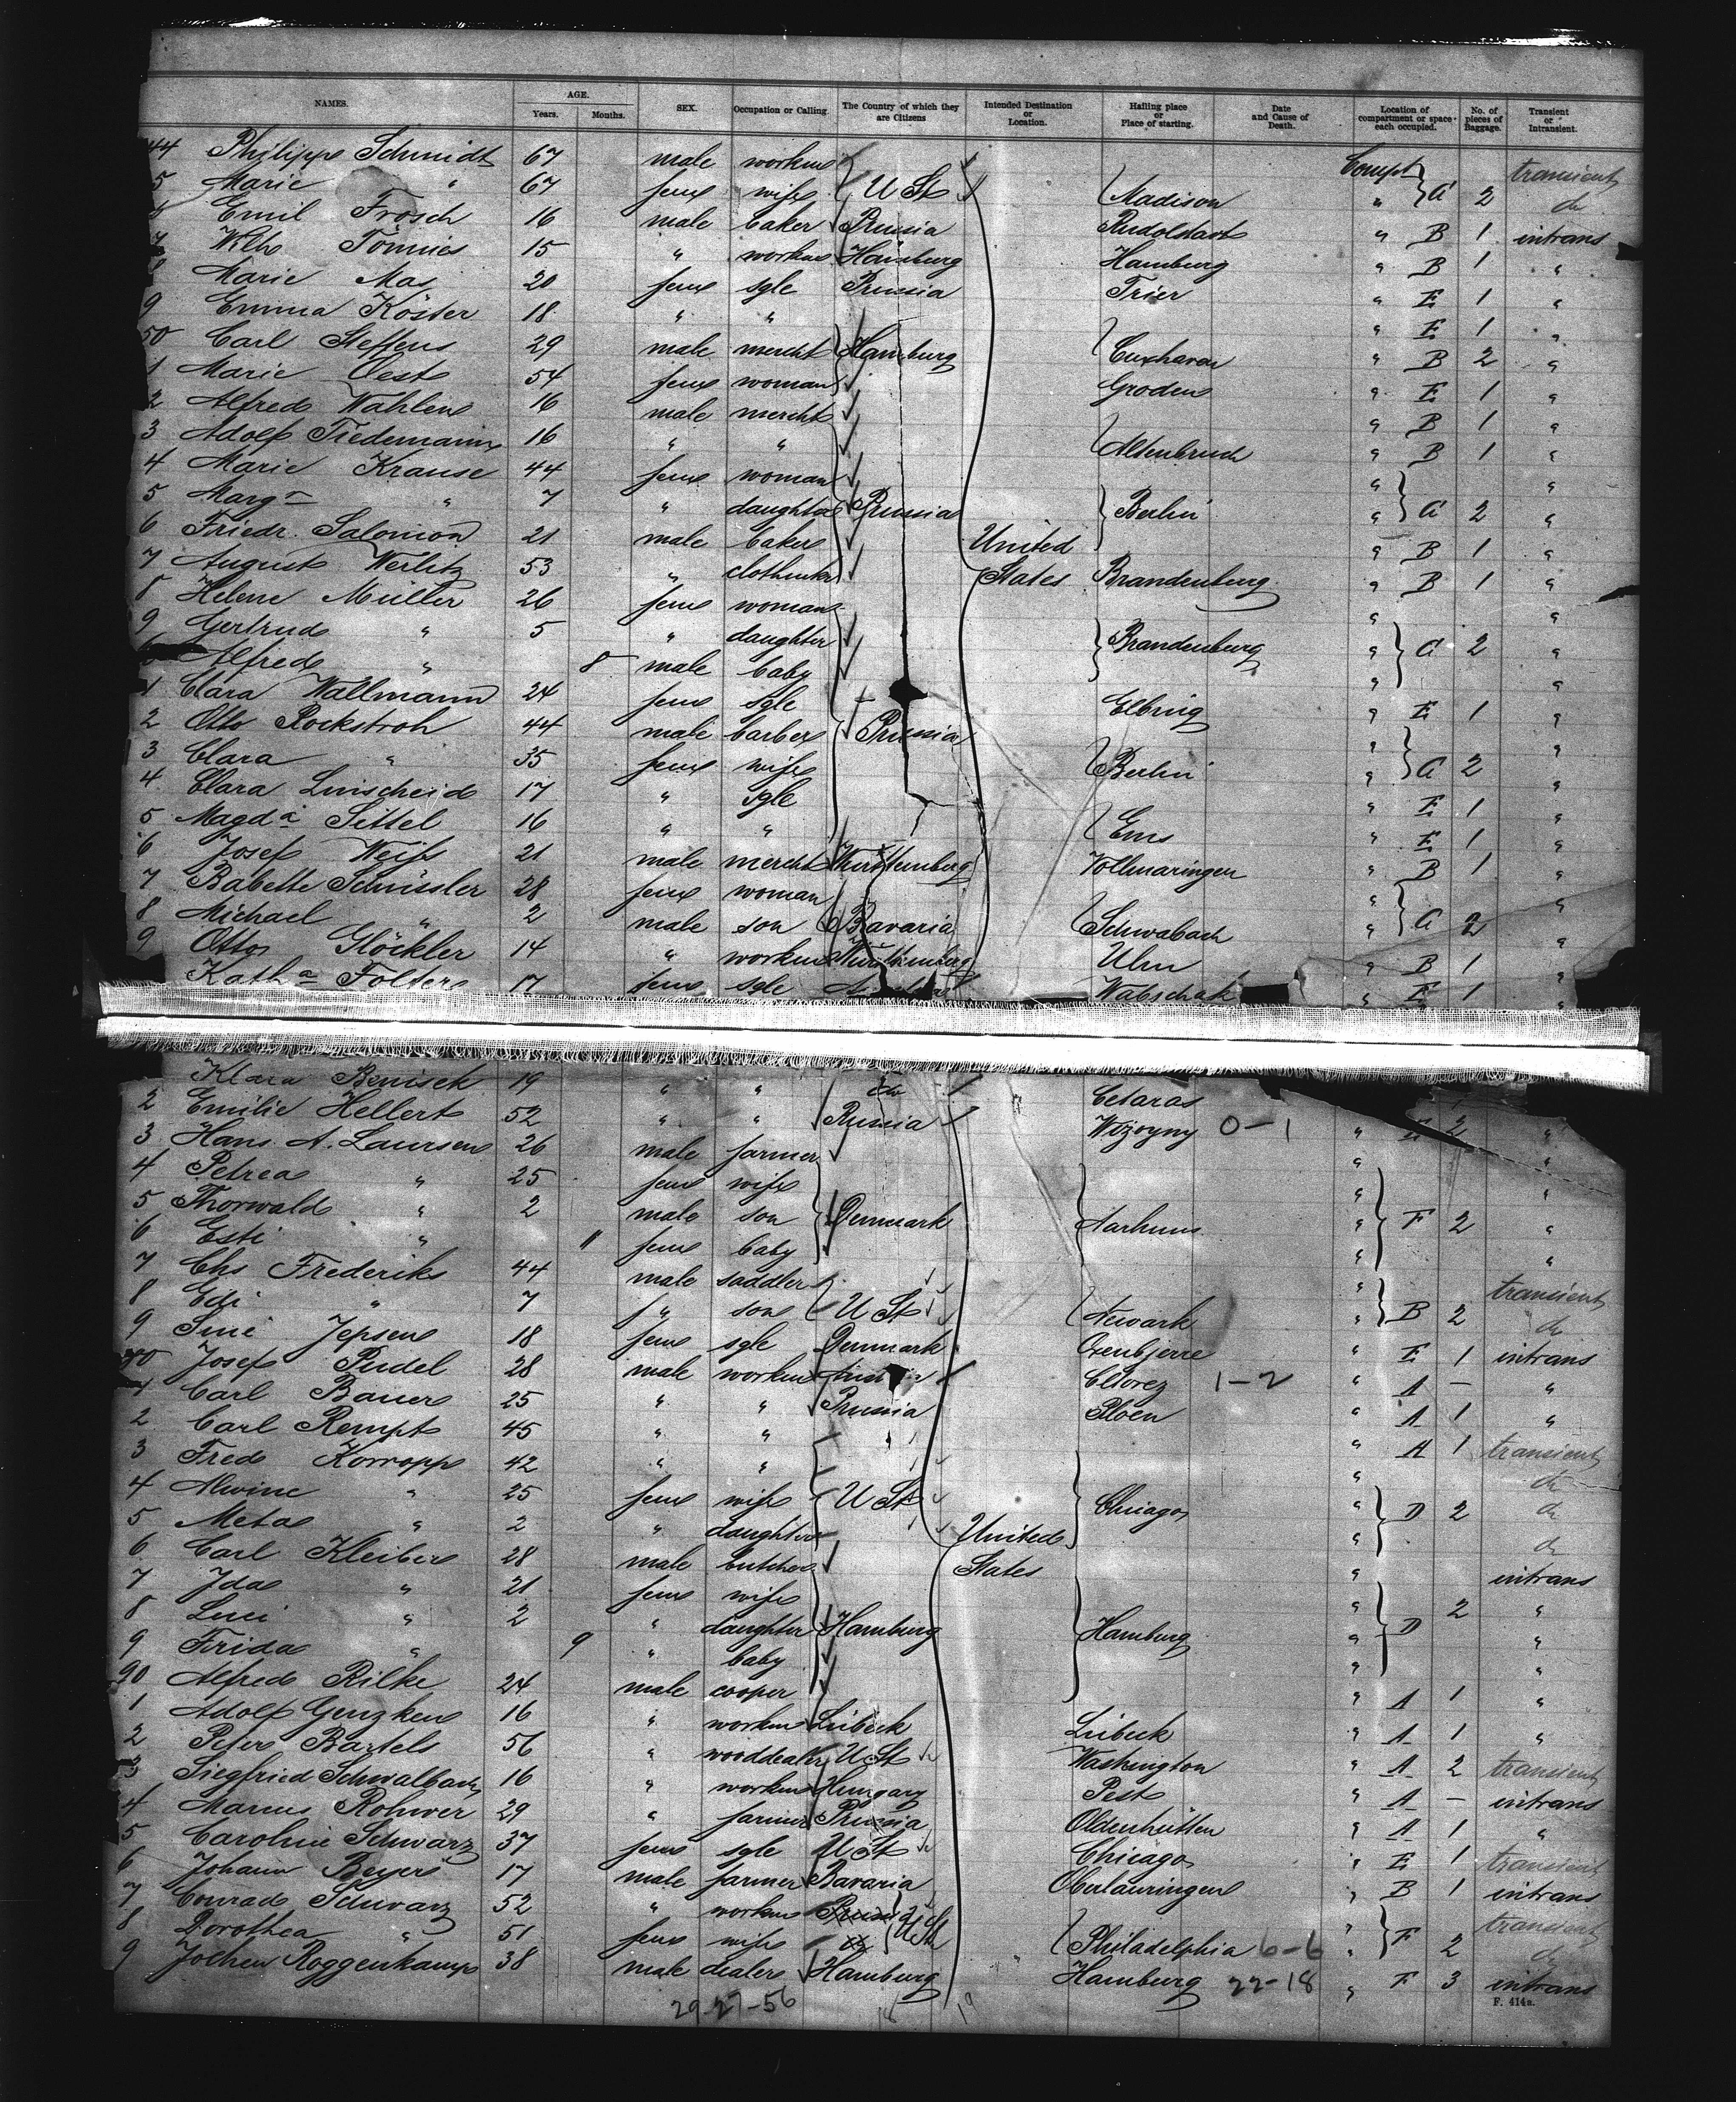 NAMES. AGE. Years. Months. SEX. Occupation or Calling. The Country of which they are Citizens Intended Destination or Location. Hailing place or Place of starting. Date and Cause of Death. Location of compartment or space each occupied. No. of pieces of Baggage. Transient or Intransient.
44 Philipp Schmidt 67 male workm Compt transient
5 Marie " 67 feme wife U St Madison " A 2 do
Emil Frosch 16 male baker Prussia Rudolstadt " B 1 intrans
7 Wilh Tönnies 15 " workm Hamburg Hamburg " B 1 "
Marie Mas 20 feme sgle Prussia Trier " E 1 "
9 Emma Köster 18 " " " E 1 "
50 Carl Steffens 29 male mercht Hamburg Cuxhaven " B 2 "
1 Marie Oest 54 feme woman Groden " E 1 "
2 Alfred Wahlen 16 male mercht " B 1 "
3 Adolf Tiedemann 16 " " Altenbruch " B 1 "
4 Marie Krause 44 feme woman " "
5 Marg a " 7 " daughter Prussia Berlin " A 2 "
6 Friedr. Salomon 21 male baker United " B 1 "
7 August Werlitz 53 " States Brandenburg " B 1 "
8 Helene Müller 26 feme woman " "
9 Gertrud " 5 " daughter Brandenburg " A 2 "
Alfred " 8 male baby " "
1 Clara Wallmann 24 feme sgle Elbing " E 1 "
2 Otto Rockstroh 44 male barber Prussia " "
3 Clara " 35 feme wife Berlin " A 2 "
4 Clara Linscheid 17 " sgle " E 1 "
5 Magd a Sittel 16 " " Ems " E 1 "
6 Josef Weiß 21 male mercht Württemberg Vollmaringen " B 1 "
7 Babette Schüssler 28 feme woman " "
8 Michael " 2 male son Bavaria Schwabach " A 2 "
9 Otto Glöckler 14 " workm Württemberg Ulm " B 1 "
Kath a Folters 17 feme sgle " E 1 "
Klara Benisch 19 " " do Cetaras
2 Emilie Hellert 52 " " Russia Wizoyny 0-1 " 2 "
3 Hans A. Laursen 26 male farmer " "
4 Petrea " 25 feme wife " "
5 Thorwald " 2 male son Denmark Aarhuus " F 2 "
6 Esti " 11 feme baby " "
7 Chs Frederiks 44 male saddler " transient
8 Edi " 7 " son U St Newark " B 2 do
9 Sine Jepsen 18 feme sgle Denmark " E 1 intrans
Josef Pudel 28 male workm 1-2 " A - "
1 Carl Bauer 25 " " Prussia Ploen " A 1 "
2 Carl Rempt 45 " " " " A 1 transient
3 Fred Korropp 42 " " " do
4 Alwine " 25 feme wife U St Chicago " D 2 do
5 Meta " 2 " daughter United " do
6 Carl Kleiber 28 male butcher States " intrans
7 Ida " 21 feme wife " 2 "
8 Luci " 2 " daughter Hamburg Hamburg " D "
9 Frida " 9 " baby " "
90 Alfred Rilke 24 male cooper " A 1 "
1 Adolf Genzken 16 " workm Lübeck Lübeck " A 1 "
2 Peter Bartels 56 " wooddealer U St Washington " A 2 transient
3 Siegfried Schwalbach 16 " workm Hungary Pest " A - intrans
4 Marcus Rohwer 29 " farmer Prussia Oldenhütten " A 1 "
5 Caroline Schwarz 37 feme sgle U St Chicago " E 1 transient
6 Johann Beyer 17 male farmer Bavaria Oberlauringen " B 1 intrans
7 Conrad Schwarz 52 " workm Prussia U St " transient
8 Dorothea " 51 feme wife do Philadelphia 6-6 " F 2 do
9 Jochen Roggenkamp 38 male dealer Hamburg Hamburg 22-18 " F 3 intrans
29-27-56 19
F. 414a.